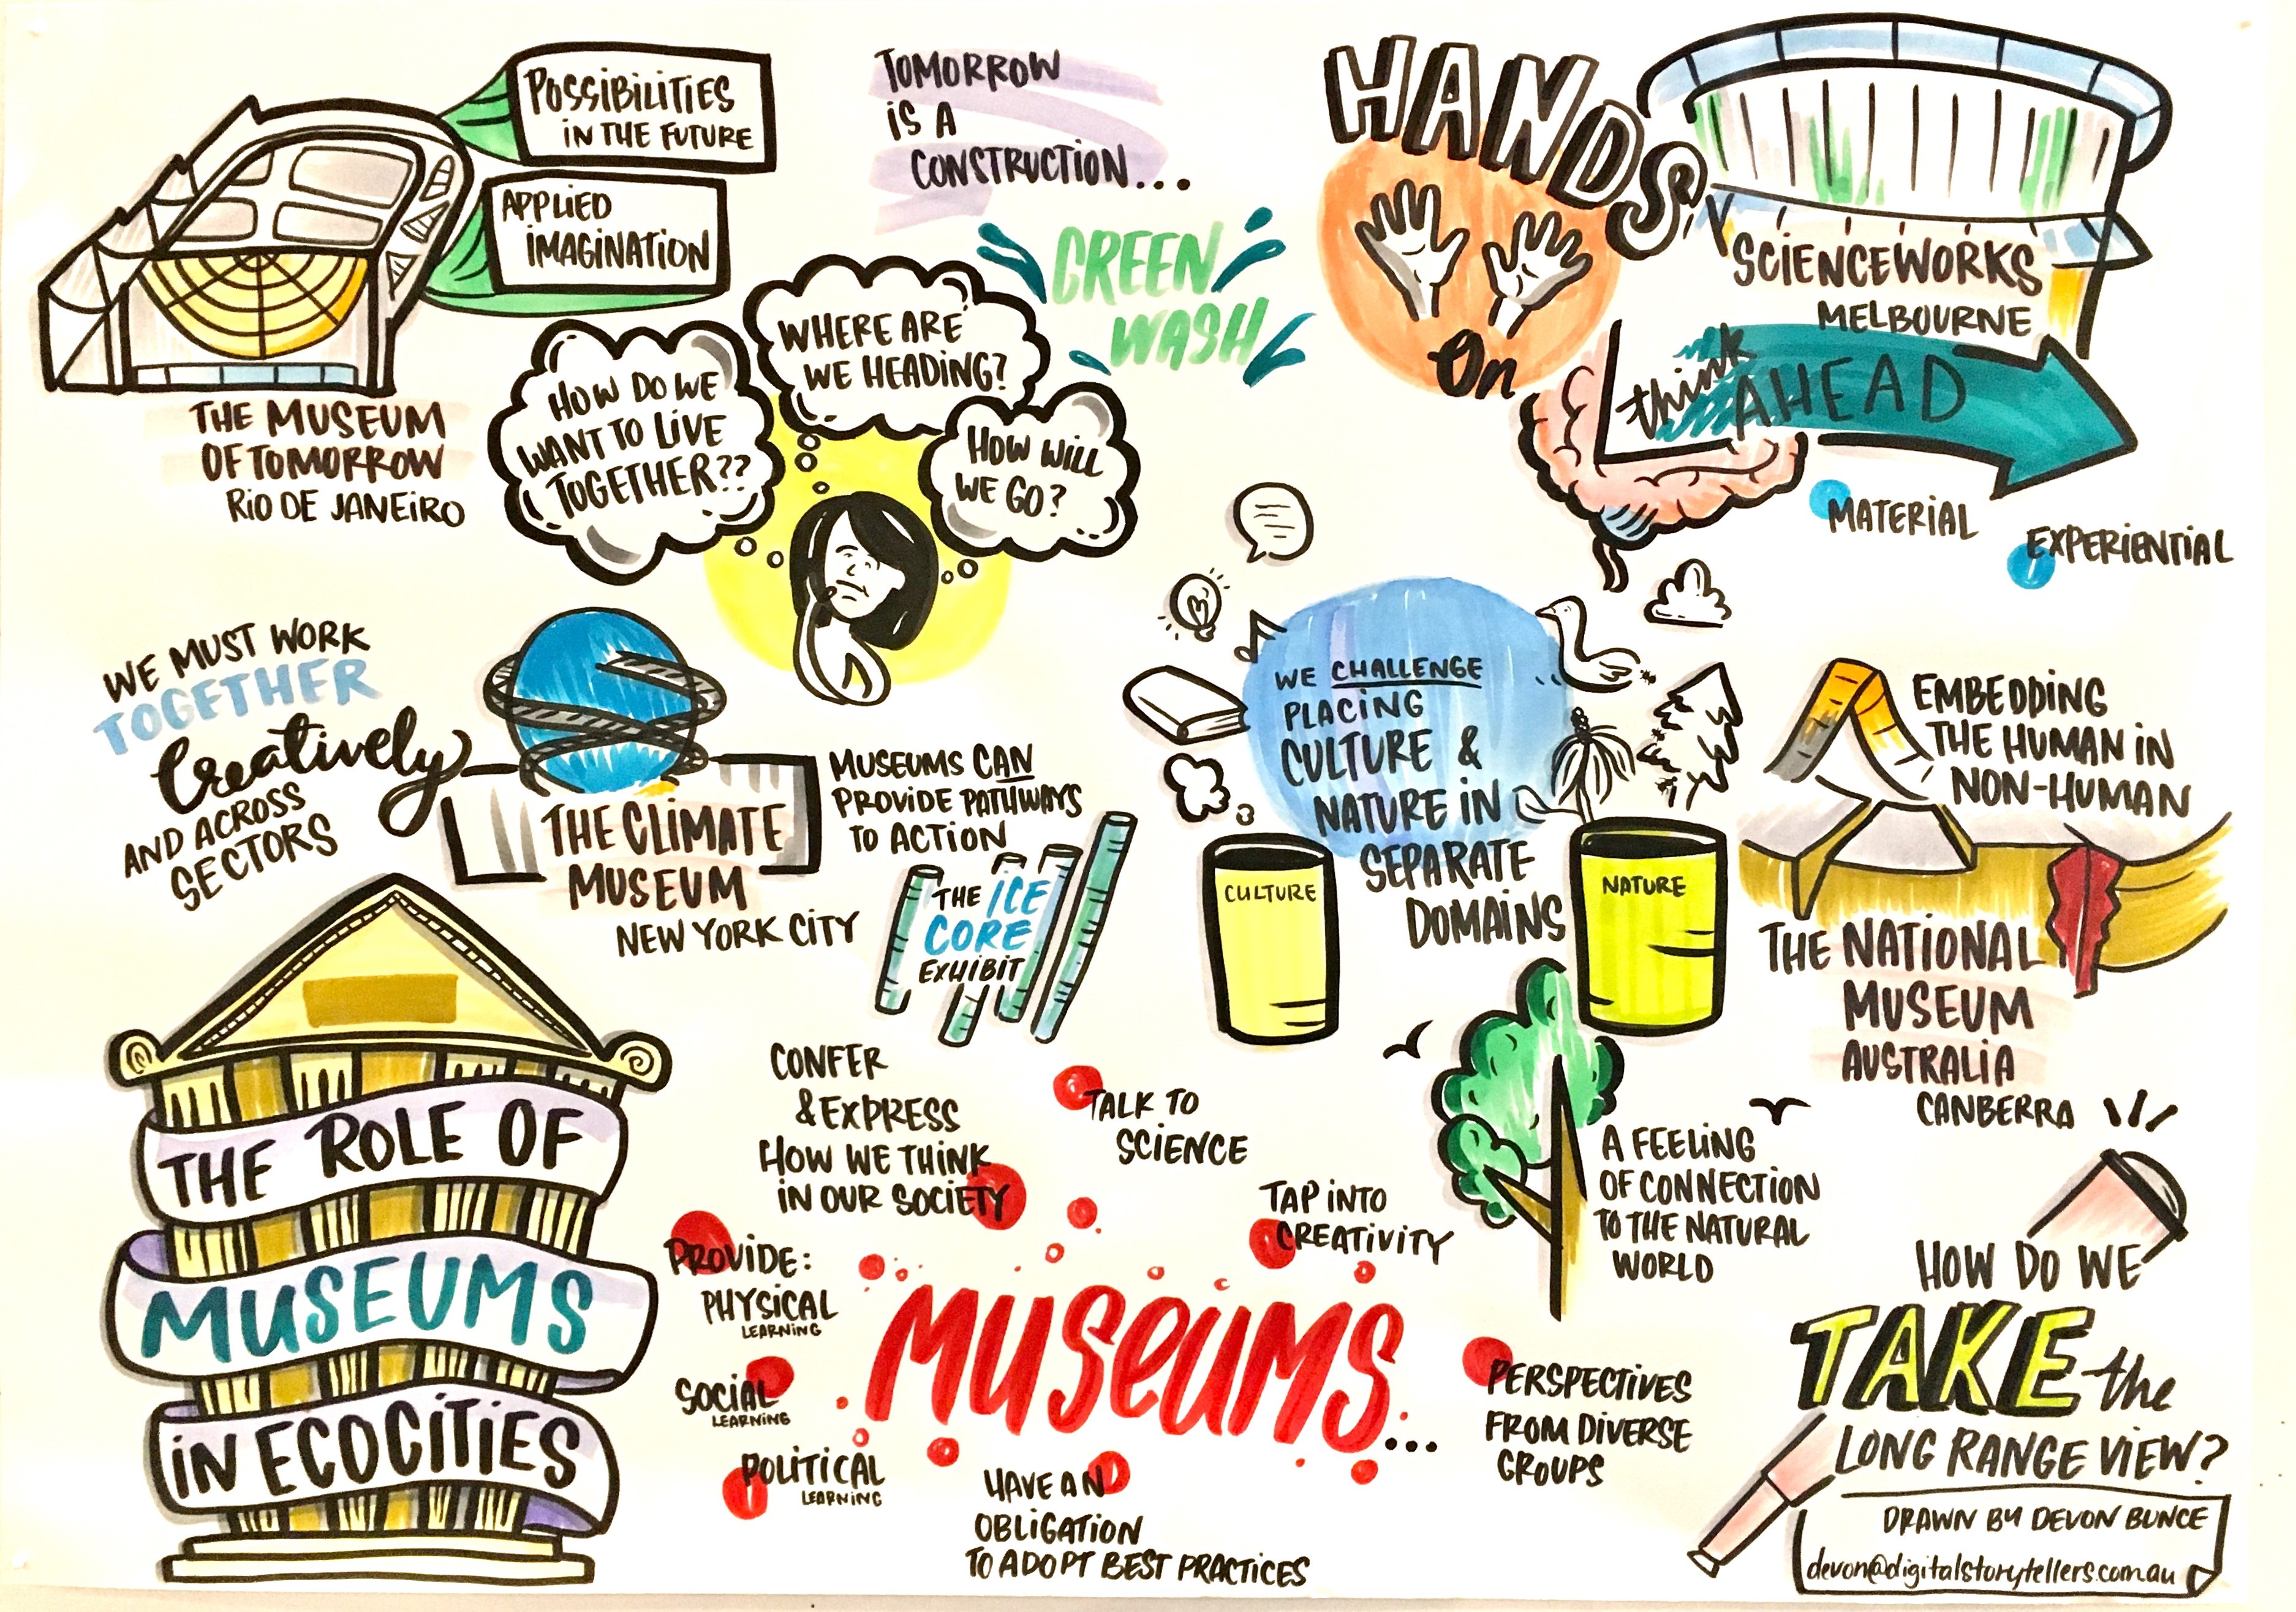 POSSIBILITIES
IN THE FUTURE
APPLIED
IMAGINATION
THE MUSEUM
OF TOMORROW
RIO DE JANEIRO
TOMORROW
IS A
CONSTRUCTION...
GREEN
WASH
HOW DO WE
WANT TO LIVE
TOGETHER??
WHERE ARE
WE HEADING?
HOW WILL
WE GO?
HANDS
On
SCIENCEWORKS
MELBOURNE
think
AHEAD
MATERIAL
EXPERIENTIAL
WE MUST WORK
TOGETHER
Creatively
AND ACROSS
SECTORS
THE CLIMATE
MUSEUM
NEW YORK CITY
MUSEUMS CAN
PROVIDE PATHWAYS
TO ACTION
THE ICE
CORE
EXHIBIT
WE CHALLENGE
PLACING
CULTURE &
NATURE IN
SEPARATE
DOMAINS
CULTURE
NATURE
EMBEDDING
THE HUMAN IN
NON-HUMAN
THE NATIONAL
MUSEUM
AUSTRALIA
CANBERRA
A FEELING
OF CONNECTION
TO THE NATURAL
WORLD
THE ROLE OF
MUSEUMS
IN ECOCITIES
CONFER
& EXPRESS
HOW WE THINK
IN OUR SOCIETY
TALK TO
SCIENCE
TAP INTO
CREATIVITY
PROVIDE:
PHYSICAL
LEARNING
SOCIAL
LEARNING
POLITICAL
LEARNING
MUSEUMS...
HAVE AN
OBLIGATION
TO ADOPT BEST PRACTICES
PERSPECTIVES
FROM DIVERSE
GROUPS
HOW DO WE
TAKE the
LONG RANGE VIEW?
DRAWN BY DEVON BUNCE
devon@digitalstorytellers.com.au